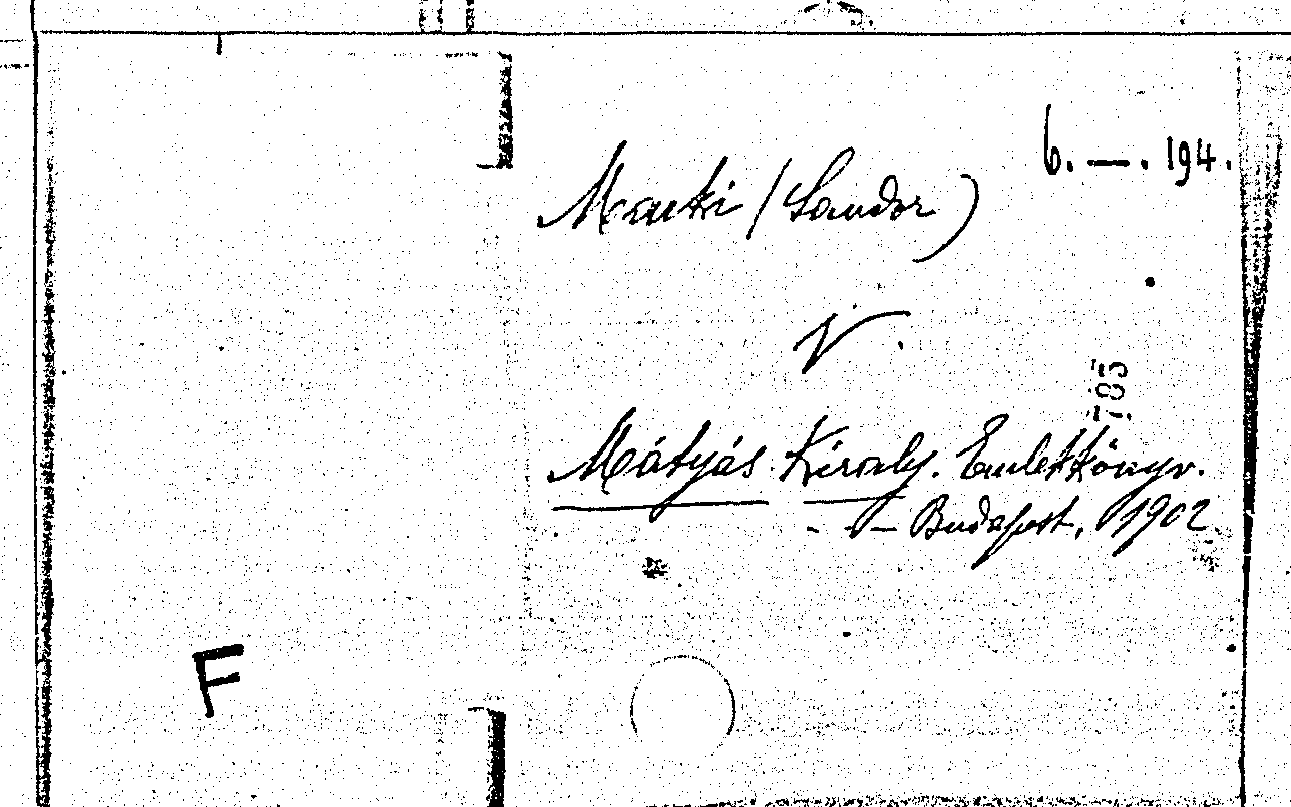 6. — . 194.
Marki (Sandor)
V.
703
Mátyás Király. Emlekkönyv.
- - — Budapest, 1902
F